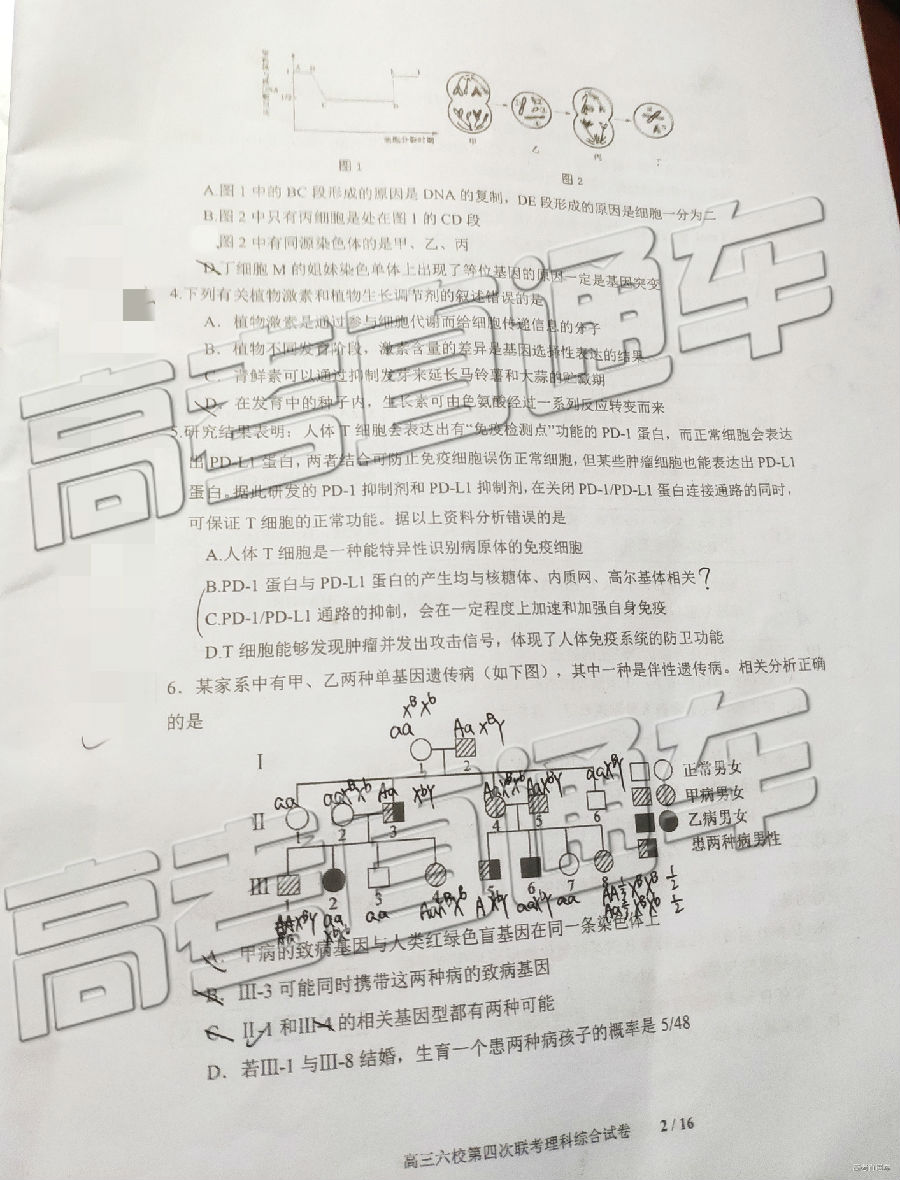 细胞分裂时期
甲
乙
丙
丁
图 1
图 2
A.图 1 中的 BC 段形成的原因是 DNA 的复制，DE 段形成的原因是细胞一分为二
B.图 2 中只有丙细胞是处在图 1 的 CD 段
.图 2 中有同源染色体的是甲、乙、丙
D.丁细胞 M 的姐妹染色单体上出现了等位基因的原因一定是基因突变
4.下列有关植物激素和植物生长调节剂的叙述错误的是
A．植物激素是通过参与细胞代谢而给细胞传递信息的分子
B．植物不同发育阶段，激素含量的差异是基因选择性表达的结果
C．青鲜素可以通过抑制发芽来延长马铃薯和大蒜的贮藏期
D．在发育中的种子内，生长素可由色氨酸经过一系列反应转变而来
5.研究结果表明：人体 T 细胞会表达出有“免疫检测点”功能的 PD-1 蛋白，而正常细胞会表达
出 PD-L1 蛋白，两者结合可防止免疫细胞误伤正常细胞，但某些肿瘤细胞也能表达出 PD-L1
蛋白。据此研发的 PD-1 抑制剂和 PD-L1 抑制剂，在关闭 PD-1/PD-L1 蛋白连接通路的同时，
可保证 T 细胞的正常功能。据以上资料分析错误的是
A.人体 T 细胞是一种能特异性识别病原体的免疫细胞
B.PD-1 蛋白与 PD-L1 蛋白的产生均与核糖体、内质网、高尔基体相关？
C.PD-1/PD-L1 通路的抑制，会在一定程度上加速和加强自身免疫
D.T 细胞能够发现肿瘤并发出攻击信号，体现了人体免疫系统的防卫功能
6．某家系中有甲、乙两种单基因遗传病（如下图），其中一种是伴性遗传病。相关分析正确
的是
XBXb
aa AaXBY
I 1 2
正常男女
甲病男女
乙病男女
患两种病男性
aa aaXBXb Aa XbY AaXBXb AaXBY aaXBY
II 1 2 3 4 5 6
III 1 2 3 4 5 6 7 8
aa XbXb aa AaXBXb A XbY aaXbY aa
AA1/3 XBXB 1/2
Aa2/3 XBXb 1/2
A．甲病的致病基因与人类红绿色盲基因在同一条染色体上
B．Ⅲ-3 可能同时携带这两种病的致病基因
C．Ⅱ-1 和Ⅲ-4 的相关基因型都有两种可能
D．若Ⅲ-1 与Ⅲ-8 结婚，生育一个患两种病孩子的概率是 5/48
高三六校第四次联考理科综合试卷 2 / 16
高考直通车
高考直通车